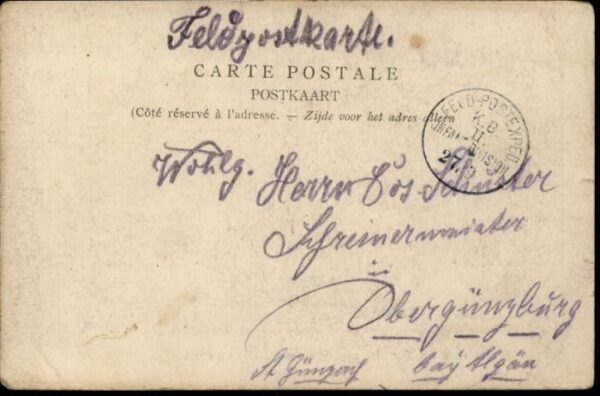 Feldpostkarte.
CARTE POSTALE
POSTKAART
(Côté réservé à l'adresse. — Zijde voor het adres alleen
FELD-POSTEXPED.
K.B.
II.
DIVISION
Wohlg. Herrn Schuster
Schreinermeister
in
Obergünzburg
St Günzach bay Algäu